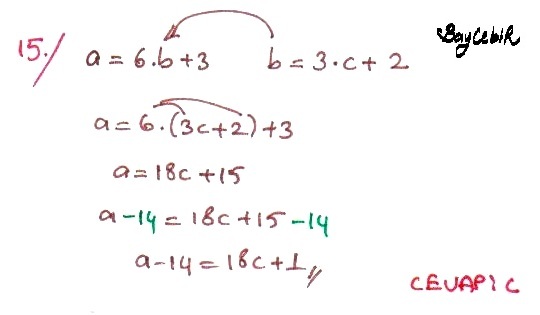 15./ a = 6.b + 3 b = 3.c + 2
BayCebir
a = 6.(3c+2)+3
a = 18c + 15
a - 14 = 18c + 15 - 14
a - 14 = 18c + 1//
CEVAP: C